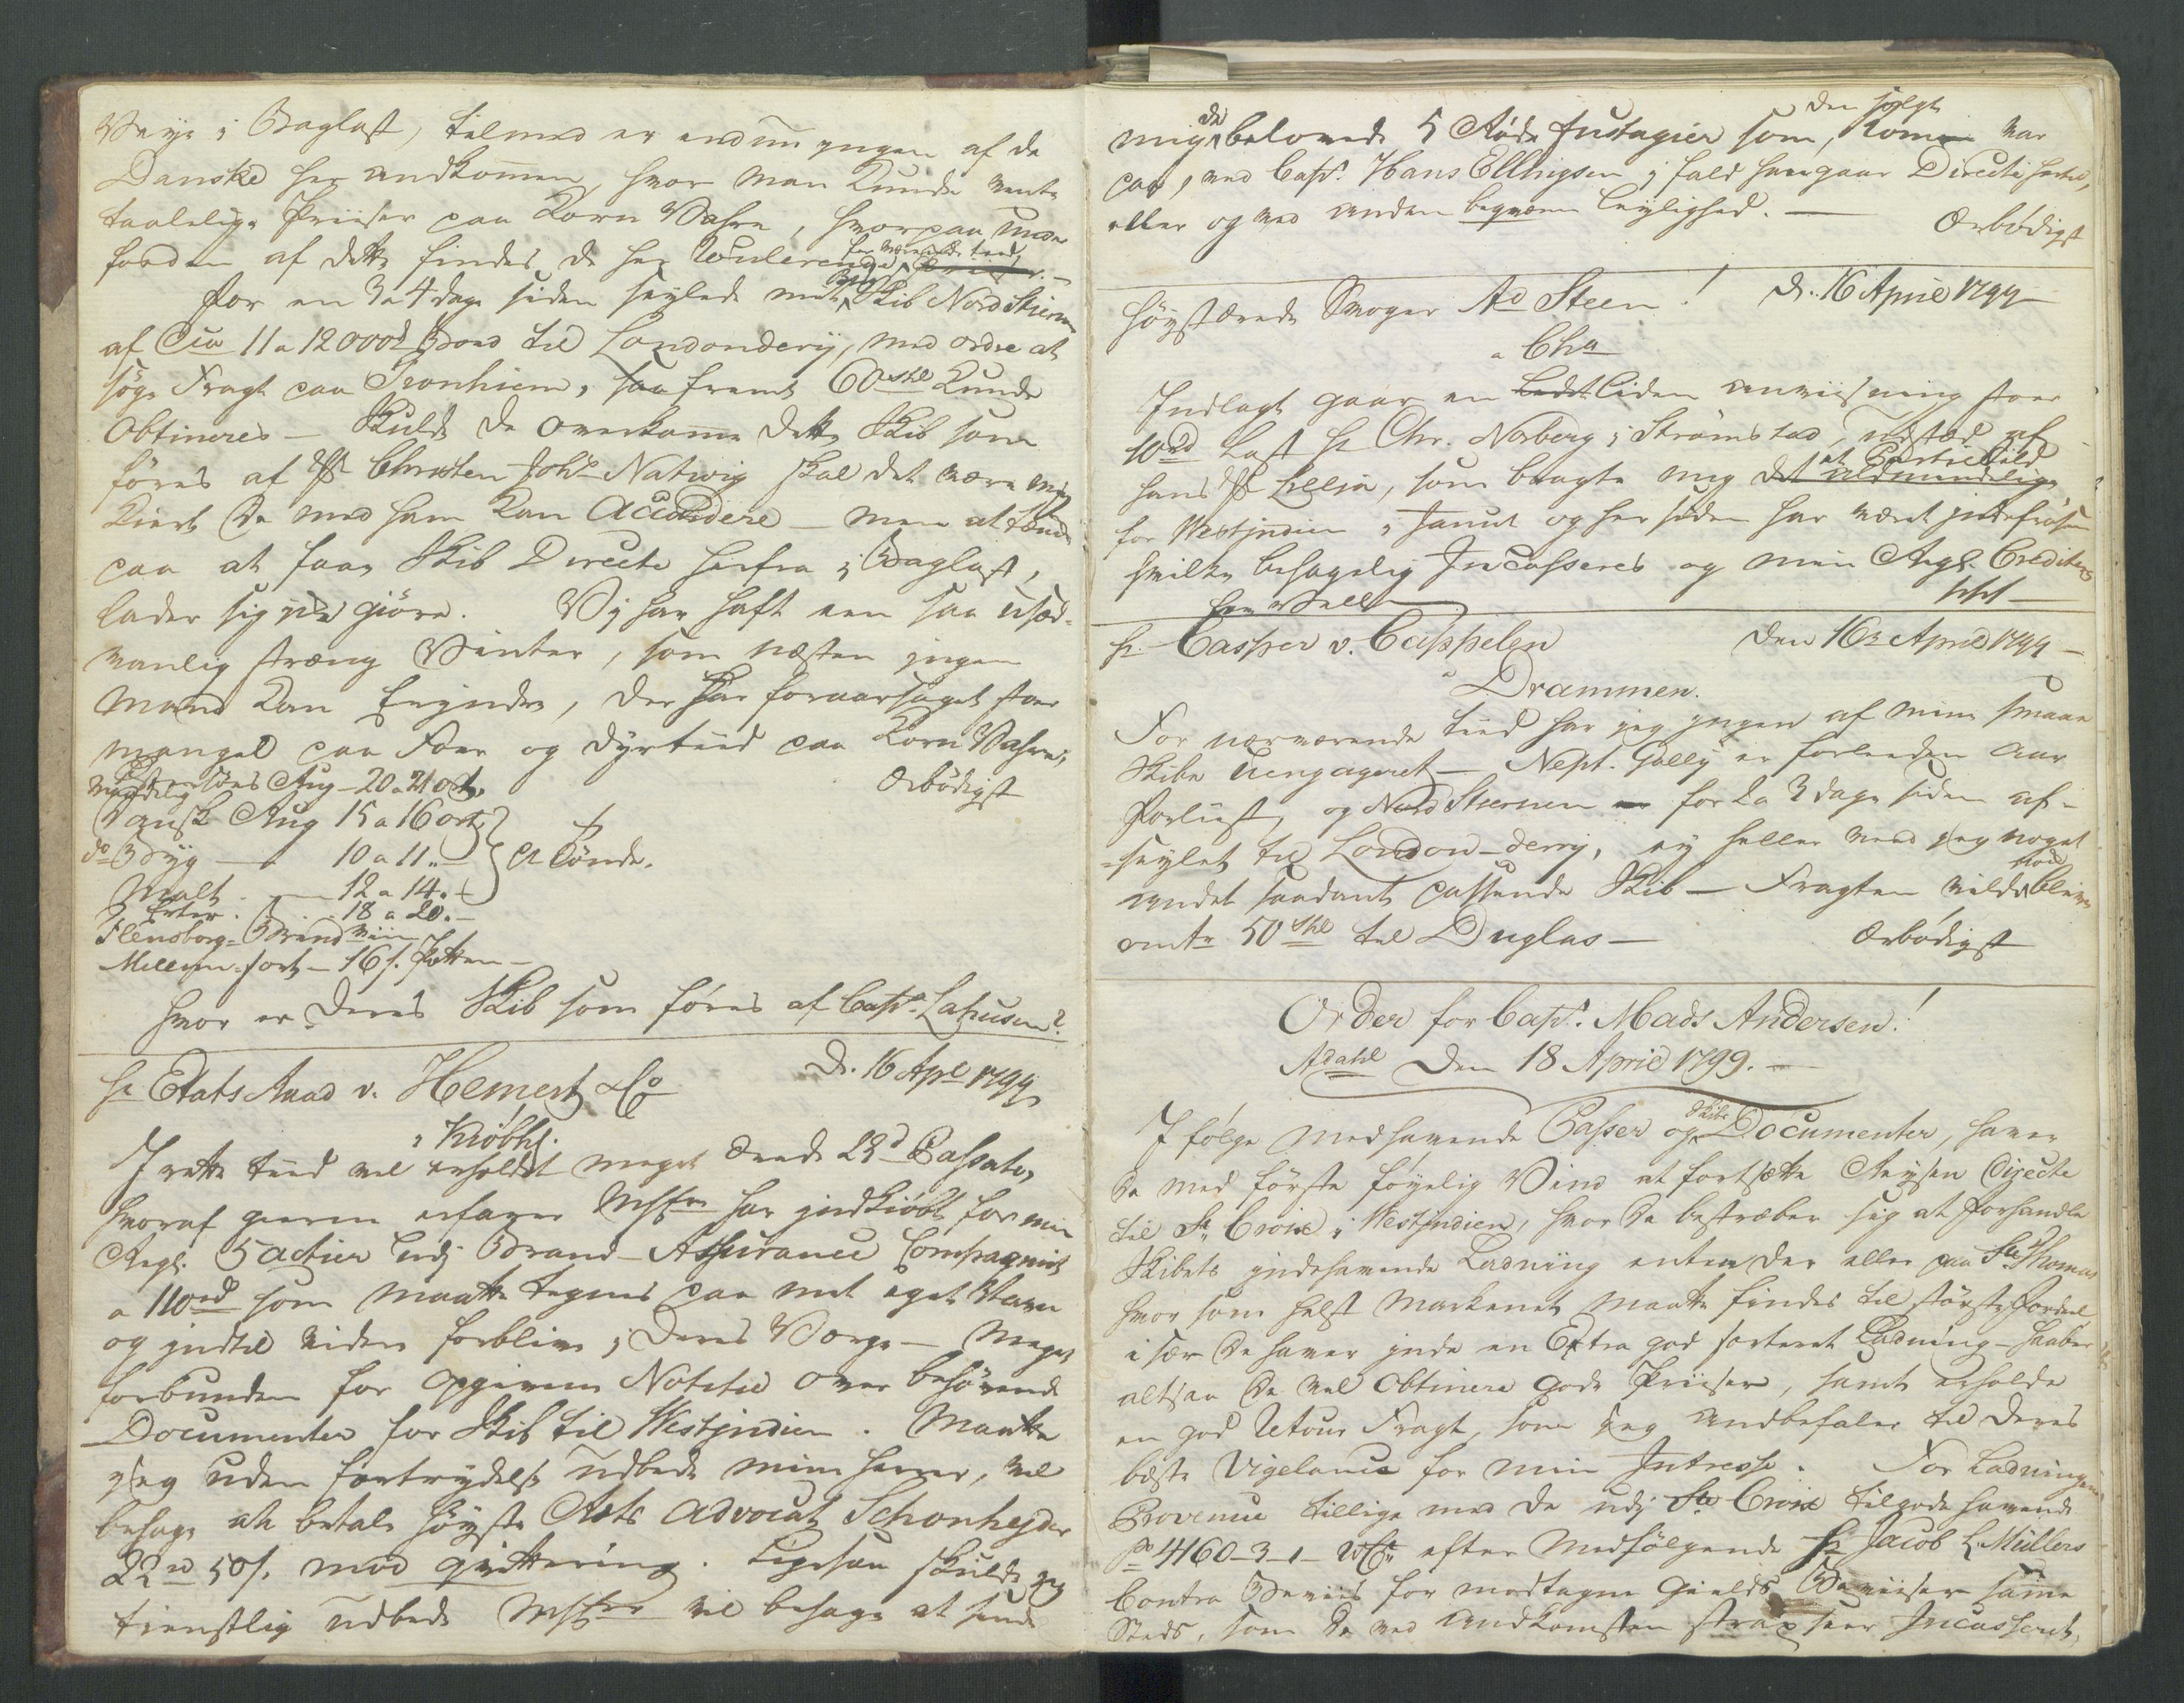 Veye i Baglast, tilmed er endnu ingen af de
Danske her ankommen, hvor man kunde vente
taalelige Priiser paa Korn Vahre, hvorpaa
af dette findes de her Roulerende for nærværende tiid
For en 3 a 4 dage siden seylede mit Skib Nord Stiernen
af Cia 11 a 12000 Bord til Londonderry, med ordre at
søge Fragt paa Tronhiem, saa fremt 60 shl kunde
Obtineres — Skulde De overkomme dette Skib som
føres af Sr Christen Johs Natwig skal det være mig
kiert De med ham kan Accordere — men at tænke
paa at faae Skib Directe herfra i Baglast,
lader sig ey giøre. Vi har haft en saa usæd-
vanlig stræng Vinter, som næsten ingen
Mand kan Erindre, der har foraarsaget stoer
mangel paa Foer og dyrtiid paa Korn Vahre,
Ærbødigst
Rug — 20 a 21 ort.
Dansk Rug 15 a 16 ort
do Byg — 10 a 11 .. — a Tønde.
Malt — 12 a 14 . —
Erter . 18 a 20 . —
Flensborg Brændeviin
Mellem sort — 16 s. Potten —
Hvor er Deres Skib som føres af Capt. Lahusen?
Hr Etats Raad v. Hemert & Co D. 16 Apl 1799
i Kiøbh.
I rette tiid vel erholdet meget ærede 23d Passato,
hvoraf gierne erfarer MHrr har indkiøbt for min
Regl. 5 actier udj Brand-Assurance Compagniet
a 110 rd som maatte tegnes paa mit eget Navn
og indtil viidere forblive i Deres Værge — Meget
forbunden for opgivne Notitie over behøvende
Documenter for Skib til Westjndien. Maatte
jeg uden fortrydelse udbede mine Herrer, vil
behage at betale høyste Rets Advocat Schønheyder
22 rd 50 s. mod qvittering. Ligesaa skulde jeg
tienstlig udbede MHrr vil behage at sende
mig de belovede 5 Røde Fustagier som, den solgte
paa, med Capt. Hans Ellingsen i fald han gaar Directe hertil,
eller og med anden beqvem leylighed. —
Ærbødigst
Høystærede Svoger Ad Steen! D. 16 April 1799
a Cha
Indlagt gaar en liden anviisning stoer
10 rd Last Hr Chr. Norberg i Strømstad, udsted af
hans Sr Lilia, som bragte mig et Partie Sild
for Westjndien i Januar og her siden har været indefrosen
hvilke behagelig Incasseres og min Regl. Crediteres
Far vel
Hr. Casper v. Cappelen Den 16 April 1799 —
a Drammen.
For nærværende tiid har jeg ingen af mine smaae
Skibe uengageret — Nept. Gally er forleeden Aar
Forliist, og Nord Stiernen for 2 a 3 dage siden af-
-seylet til London-derry, ey heller veed jeg noget
andet saadant passende Skib — Fragten vilde blive
omtr 50 shl til Duglas —
Ærbødigst
Order for Capt. Mads Andersen!
Den 18 April 1799. —
I følge medhavende Passer og Skibs Documenter, haver
De med første føyelig Vind at fortsætte Reysen Directe
til St. Croix i Westjndien, hvor De bestræber sig at forhandle
Skibets indehavende Ladning enten der eller paa St. Thomas
hvor som helst Markenet maatte findes til største fordeel,
især De haver inde en Extra god sorteret Ladning — haaber
altsaa De vil Obtinere gode Priiser, samt erholde
en god Retour Fragt, som jeg anbefaler til Deres
beste Vigelance for min Intresse. For Ladningens
Provenue tillige med de udj St. Croix tilgode havende
Ps 4160-3-1- efter Medfølgende Hr Jacob L. Müllers
Contra Beviis for modtagne Gields Beviiser samme
Steds, som De ved ankomsten strax seer Incasseret,